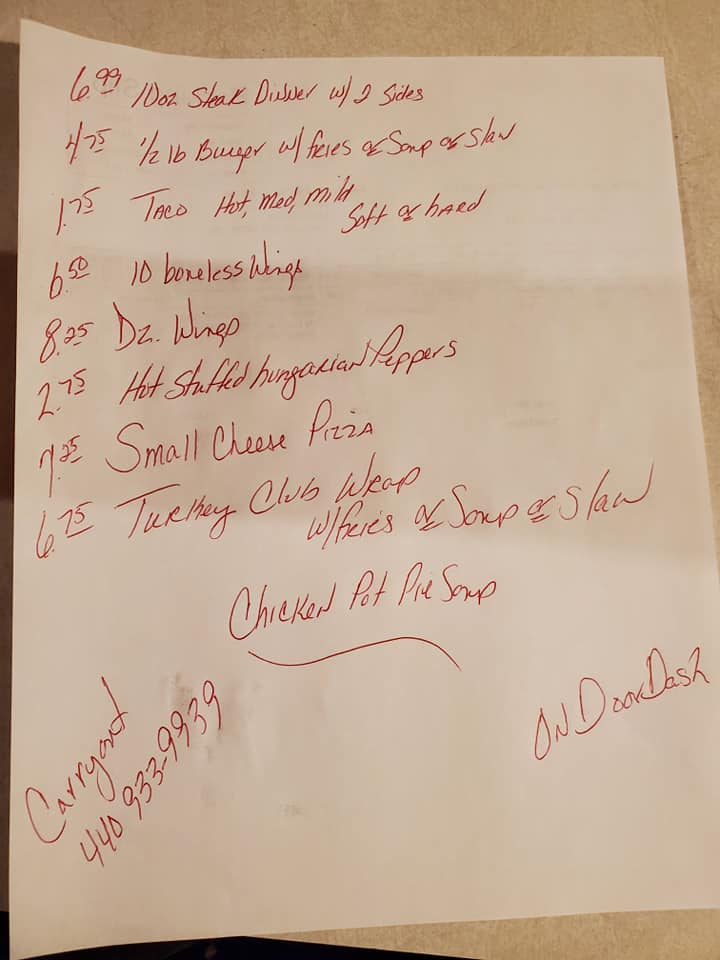 6.99 10oz Steak Dinner w/ 2 Sides
4.75 1/2 lb Burger w/ fries or Soup or Slaw
1.75 Taco Hot, Med, Mild
Soft or hard
6.50 10 boneless Wings
8.25 Dz. Wings
2.75 Hot Stuffed hungarian Peppers
7.25 Small Cheese Pizza
6.75 Turkey Club Wrap
w/ fries or Soup or Slaw
Chicken Pot Pie Soup
Carryout
440 933-9939
ON DoorDash